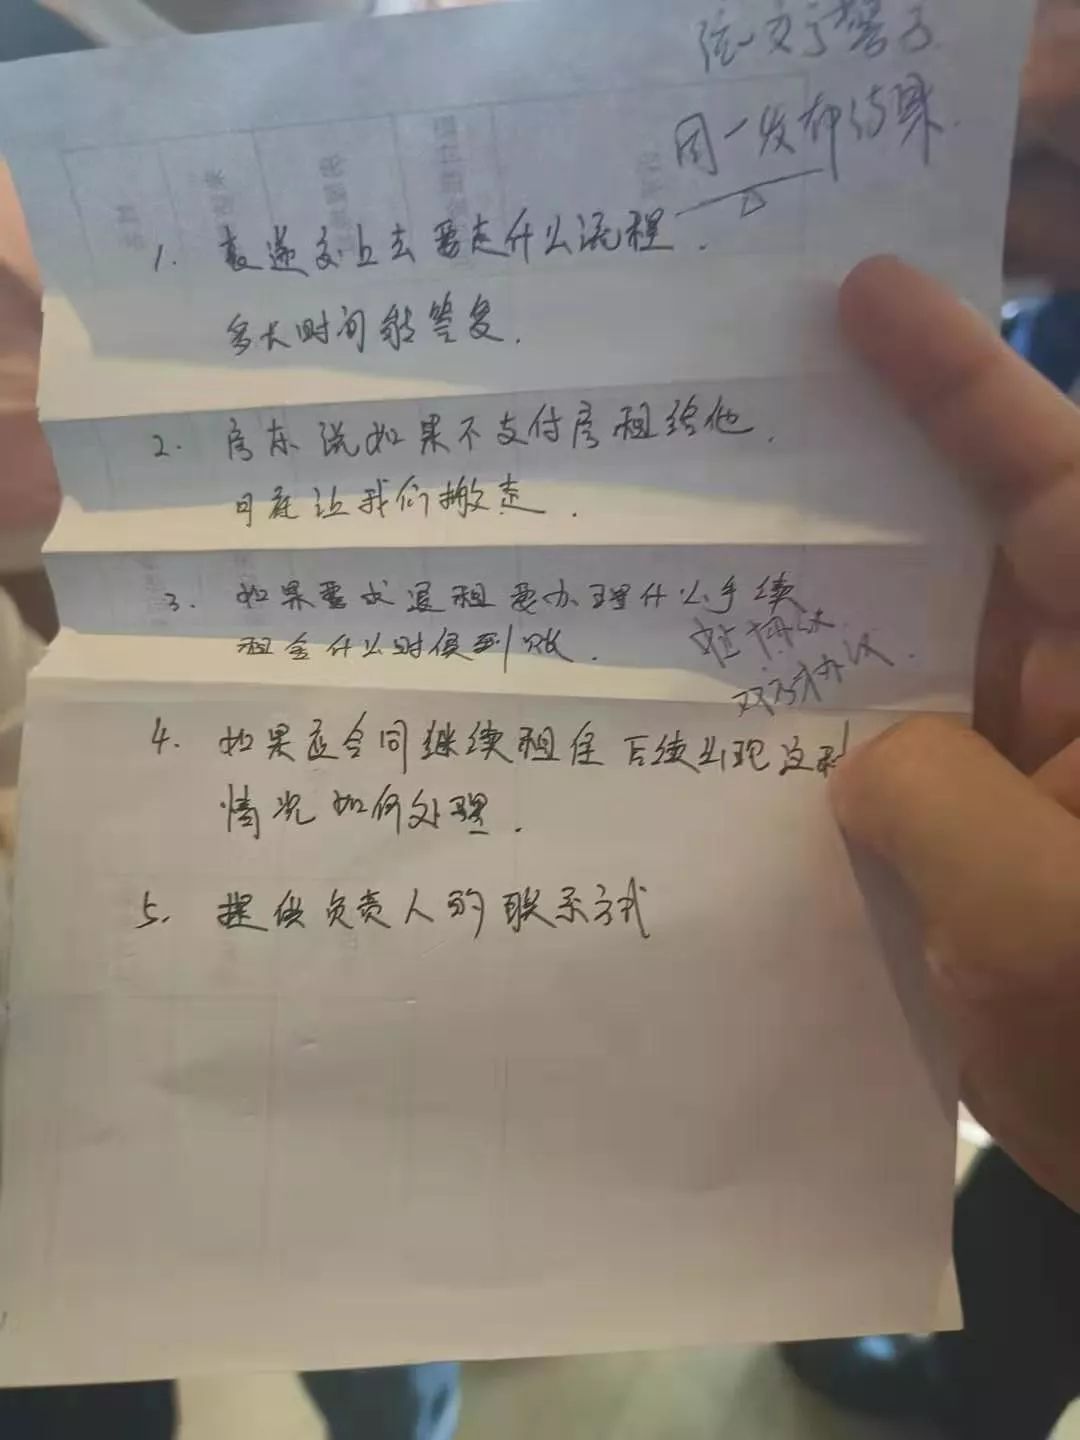 同一发布结果.
1. 表递交上去要走什么流程.
多长时间能答复.
2. 房东说如果不支付房租给他,
日底让我们搬走.
3. 如果要求退租要办理什么手续
租金什么时候到账.
双方协议.
4. 如果按合同继续租住后续出现这种
情况如何处理.
5. 提供负责人的联系方式